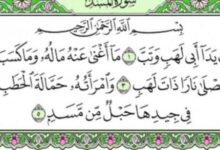 سُورَةُ المَسَدِ
بِسْمِ ٱللَّهِ ٱلرَّحْمَٰنِ ٱلرَّحِيمِ
يَدَآ أَبِى لَهَبٍ وَتَبَّ ١ مَآ أَغْنَىٰ عَنْهُ مَالُهُۥ وَمَا كَسَبَ
صْلَىٰ نَارًا ذَاتَ لَهَبٍ ٣ وَٱمْرَأَتُهُۥ حَمَّالَةَ ٱلْحَطَبِ
فِى جِيدِهَا حَبْلٌ مِّن مَّسَدٍ ٥